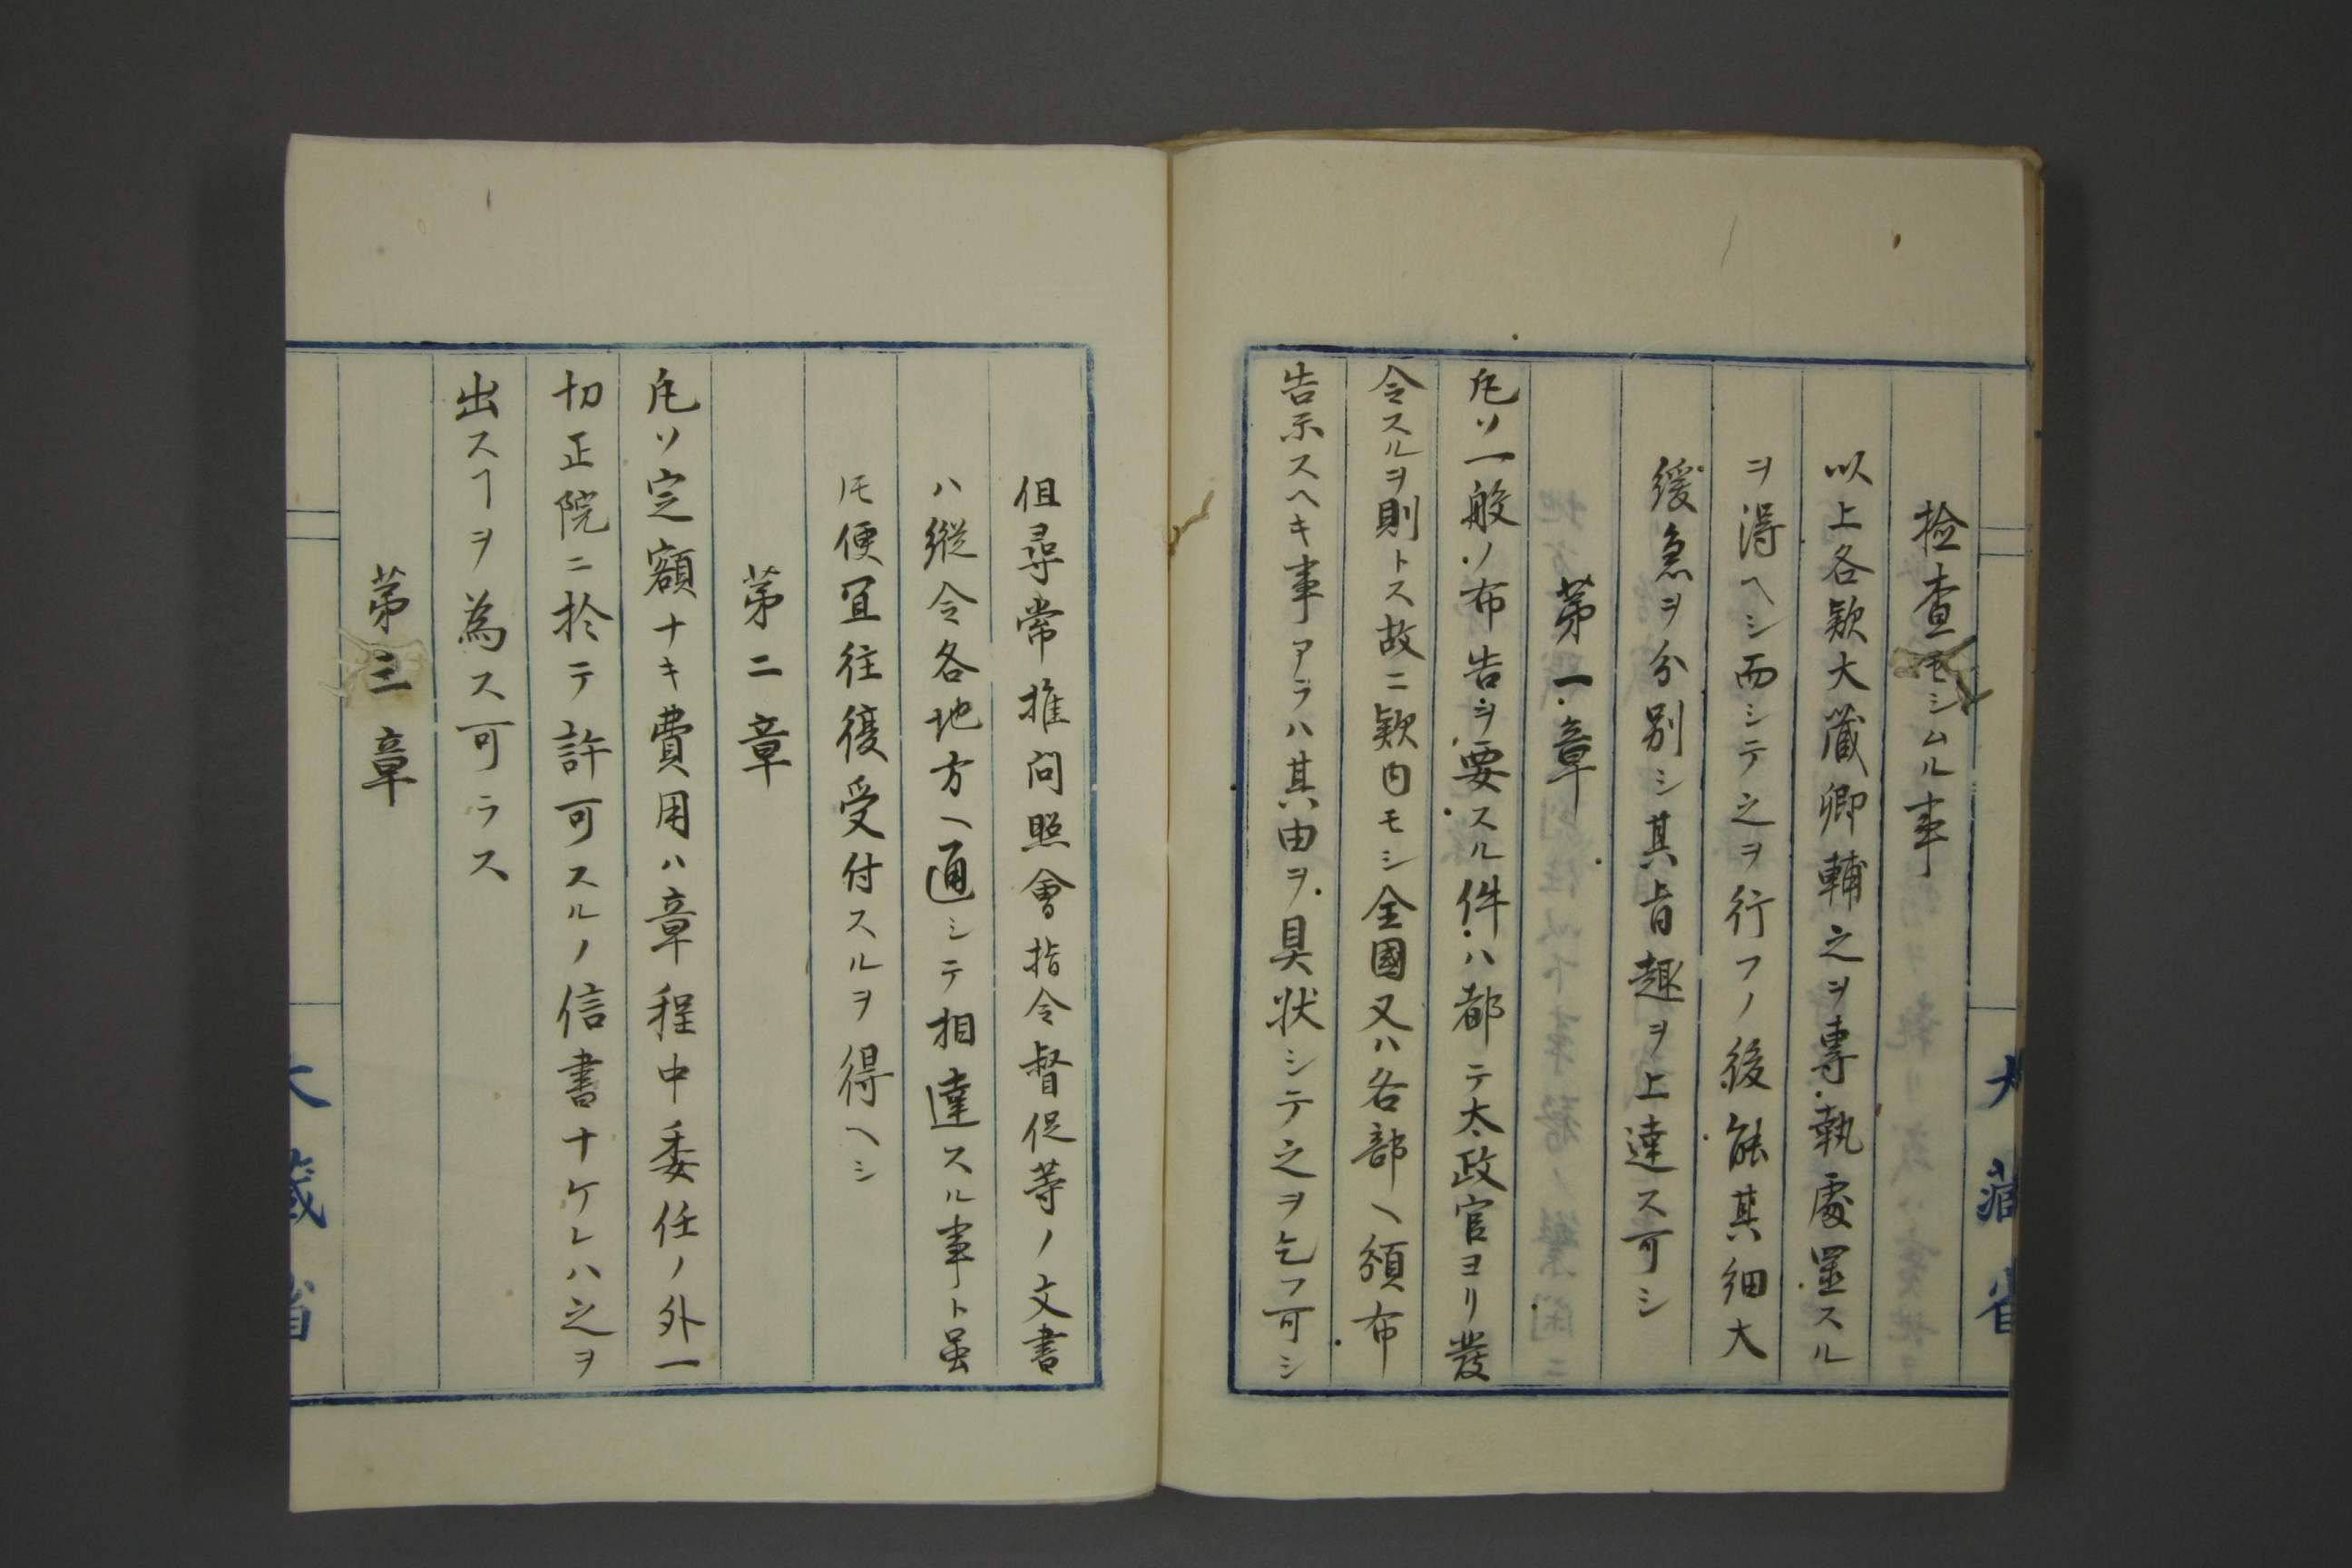 検査セシムル事
以上各欵大蔵卿輔之ヲ専執處置スル
ヲ得ヘシ而シテ之ヲ行フノ後能其細大
緩急ヲ分別シ其旨趣ヲ上達ス可シ
第一章
凡ソ一般ノ布告ヲ要スル件ハ都テ太政官ヨリ發
令スルヲ則トス故ニ欵内モシ全國又ハ各部ヘ頒布
告示スヘキ事アラハ其由ヲ具状シテ之ヲ乞フ可シ
大蔵省
但尋常推問照會指令督促等ノ文書
ハ縦令各地方ヘ通シテ相達スル事ト虽
𪜈便冝往復受付スルヲ得ヘシ
第二章
凡ソ定額ナキ費用ハ章程中委任ノ外一
切正院ニ於テ許可スルノ信書ナケレハ之ヲ
出スヿヲ為ス可ラス
第三章
大蔵省